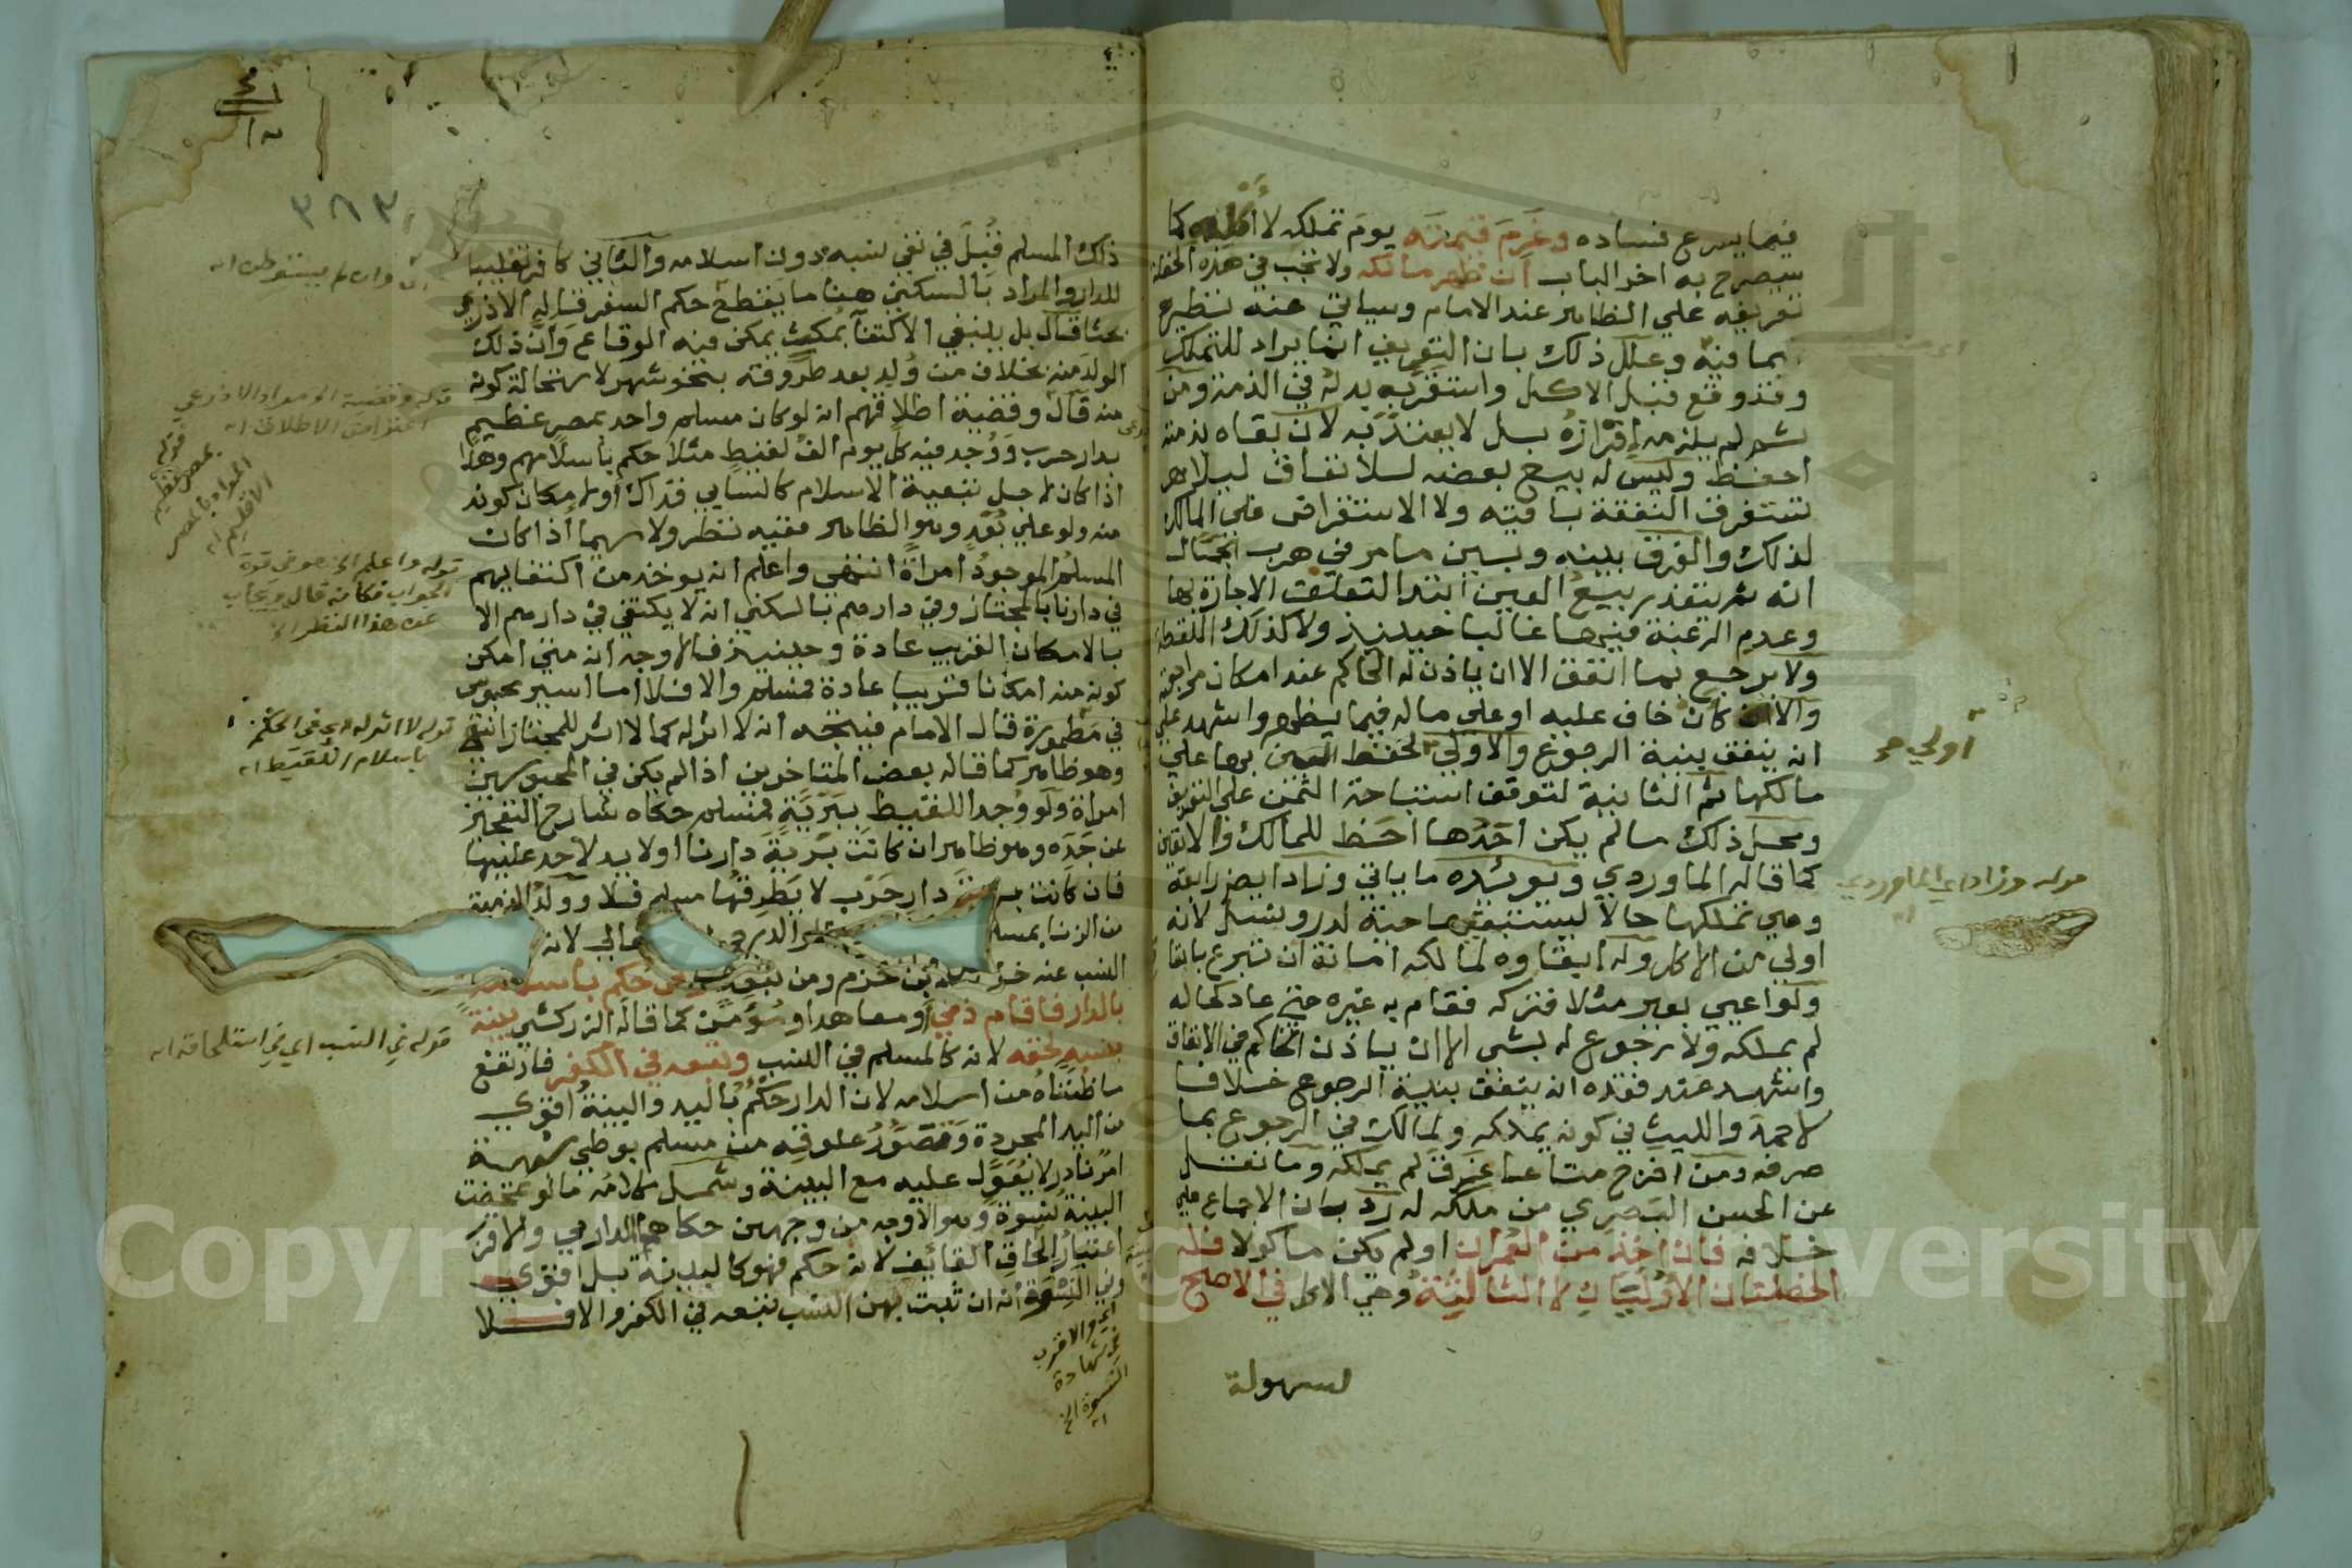 فيما يسرع فساده وغرم قيمته يوم تملكه لا أكله كما
سيصرح به اخر الباب ان ظهر مالكه ولا تجب في هذه الخصلة
تعريفه علي الظاهر عند الامام وسياتي عنه نظيره
بما فيه وعلل ذلك بان التعريف انما يراد للتملك
وقد وقع قبل الاكل واستقر به بدله في الذمة ومن
ثم لم يلزمه إفرازه بل لا يعتد به لان بقاه بذمته
احفظ وليس له بيع بعضه للانفاق ليلا
تستغرق النفقة باقيه ولا الاستقراض علي المالك
لذلك والفرق بينه وبين ما مر في هرب الجمال
انه ثم يتعذر بيع العين ابتدا لتعلق الاجازة بها
وعدم الرغبة فيها غالبا حينيذ ولا كذلك اللقطة
ولا يرجع بما انفق الا ان ياذن له الحاكم عند امكان مراجعته
والا كان خاف عليه او علي ماله فيما يظهر واشهد علي
انه ينفق بنية الرجوع والاولي لحفظ العين بها علي
مالكها ثم الثانية لتوقف استباحة الثمن علي التعريف
ومحل ذلك ما لم يكن احدها احظ للمالك والا تعين
كما قاله الماوردي ويويده ما ياتي وزاد ايضا رابعة
وهي تملكها حالا ليستبقيها حية لدر ونسل لانه
اولي من الاكل وله ابقاوه لمالكه امانة ان تبرع بانفاقه
ولو اعيي بعير مثلا فتركه فقام به غيره حتي عاد كحاله
لم يملكه ولا رجوع له بشي الا ان ياذن الحاكم في الانفاق
واشهد عند فقده انه ينفق بنية الرجوع خلافا
لاحمد والليث في كونه يملكه ولمالك في الرجوع بما
صرفه ومن اخرج متاعا غرق لم يملكه وما نقل
عن الحسن البصري من ملكه له رد بان الاجماع علي
خلافه فان اخذ من العمران او لم يكن ماكولا فله
الخصلتان الاوليان لا الثالثة وهي الاكل في الاصح
لسهولة
اولي
قوله وزاد اي الماوردي
٣٨٣
ذاك المسلم قبل في نفي نسبه دون اسلامه والثاني كافر تغليبا
للدار والمراد بالسكني هنا ما يقطع حكم السفر قاله الاذرعي
بحثا قال بل ينبغي الاكتفا بمكث يمكن فيه الوقاع وان ذلك
الولد منه بخلاف من ولد بعد طروقه بنحو شهر لاستحالة كونه
منه قال وقضية اطلاقهم انه لو كان مسلم واحد بمصر عظيم
بدار حرب ووجد فيه كل يوم الف لقيط مثلا حكم باسلامهم وهذا
اذا كان لاجل تبعية الاسلام كالسابي فذاك او لامكان كونه
منه ولو علي بعد وهو الظاهر ففيه نظر ولا سيما اذا كان
المسلم الموجود امراة انتهي واعلم انه يوخذ من اكتفايهم
في دارنا بالمجتاز وفي دارهم بالسكني انه لا يكتفي في دارهم الا
بالامكان القريب عادة وحينيذ فالاوجه انه متي امكن
كونه منه امكانا قريبا عادة فمسلم والا فلا اما اسير محبوس
في مطمورة قال الامام فيتجه انه لا اثر له كما لا اثر للمجتاز انتهي
وهو ظاهر كما قاله بعض المتاخرين اذا لم يكن في المحبوسين
امراة ولو وجد اللقيط ببرية فمسلم حكاه شارح التعجيز
عن جده وهو ظاهر ان كانت برية دارنا او لا يد لاحد عليها
فان كانت برية دار حرب لا يطرقها مسلم فلا وولد الذمية
من الزنا بمسلم
النسب عنه ابن حزم ومن تبعه ومن حكم باسلامه
بالدار فاقام ذمي او معاهد او مؤمن كما قاله الزركشي بينة
بنسبه لحقه لانه كالمسلم في النسب وتبعه في الكفر فارتفع
ما ظنناه من اسلامه لان الدار حكم باليد والبينة اقوي
من اليد المجردة وتصور علوقه من مسلم بوطي شبهة
امر نادر لا يعول عليه مع البينة وشمل كلامه ما لو تمحضت
البينة نسوة وهو الاوجه من وجهين حكاهما الدارمي والاقرب
اعتبار الحاق القائف لانه حكم فهو كالبينة بل اقوي
وفي النسوة انه ان ثبت بهن النسب تبعه في الكفر والا فلا
وان لم يستوطن اه
قوله بمصر عظيم المراد بالمصر الاقليم اه
قوله واعلم الخ هو في قوة
الجواب فكانه قال ويجاب
عن هذا النظر الخ
قوله لا اثر له اي في الحكم
باسلام اللقيط اه
قوله في النسب اي في استلحاقه اه
اي والاقرب
في شهادة
النسوة الخ
اه